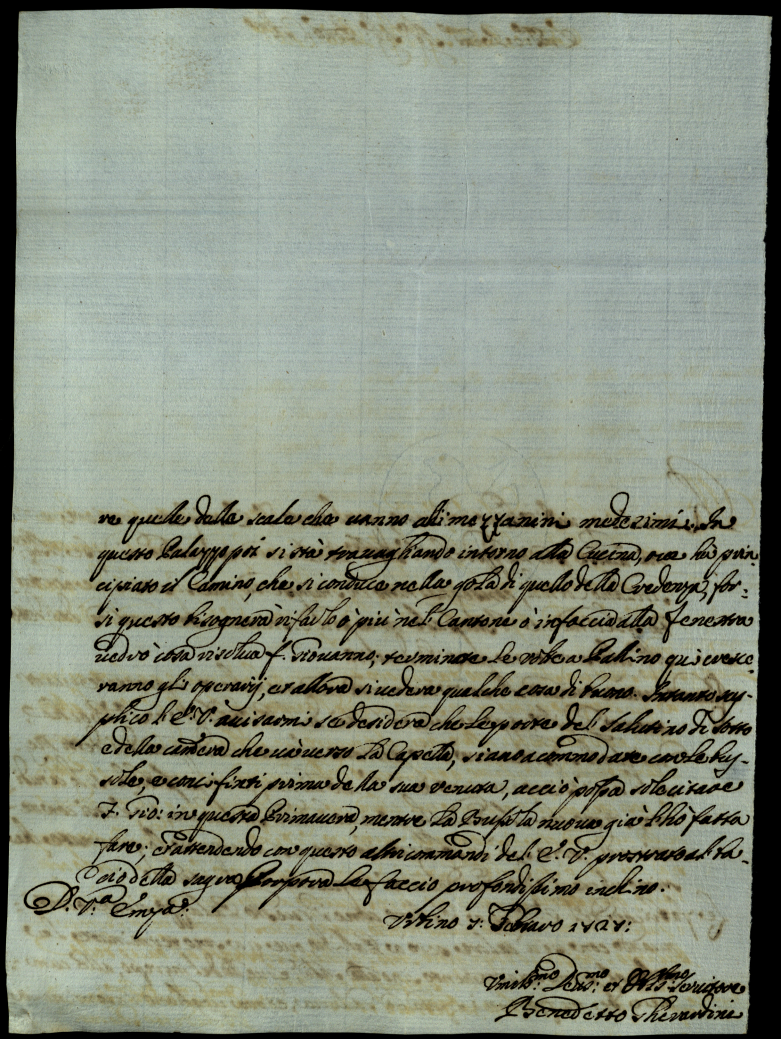 re quelle delle scale che vanno alli mezzanini medesimi. In
questo Palazzo poi si stà travagliando intorno alla Cucina, ove ha prin-
cipiato il Camino, che si conduce nella gola di quello della Credenza, for-
si questo bisognerà rifarlo ò più nel Cantone ò in faccia alla fenestra
vedrò cosa risolva f. Giovanno; terminate le robe a Pallino qui cresce-
ranno gli operarij, et allora si vederà qualche cosa di buono. Intanto sup-
plico l'E. V. avisarmi se desidera che le porte del Salotino di sotto
e della camera che và verso la Capella, siano accommodate con le bus-
sole, e con i finti prima de la sua venuta, acciò possa solecitare
F. Gio: in questa Primavera, mentre la Bussola nuova già l'hò fatta
fare; et attendendo con questo altri commandi del E. V. prostrato al ba-
cio della sagra Porpora le faccio profondissimo inchino.
D. V.ra Emza.
Urbino 7: Febraro 1727:
Umilmo: Devmo: et Obbmo Servitore
Benedetto Gherardini